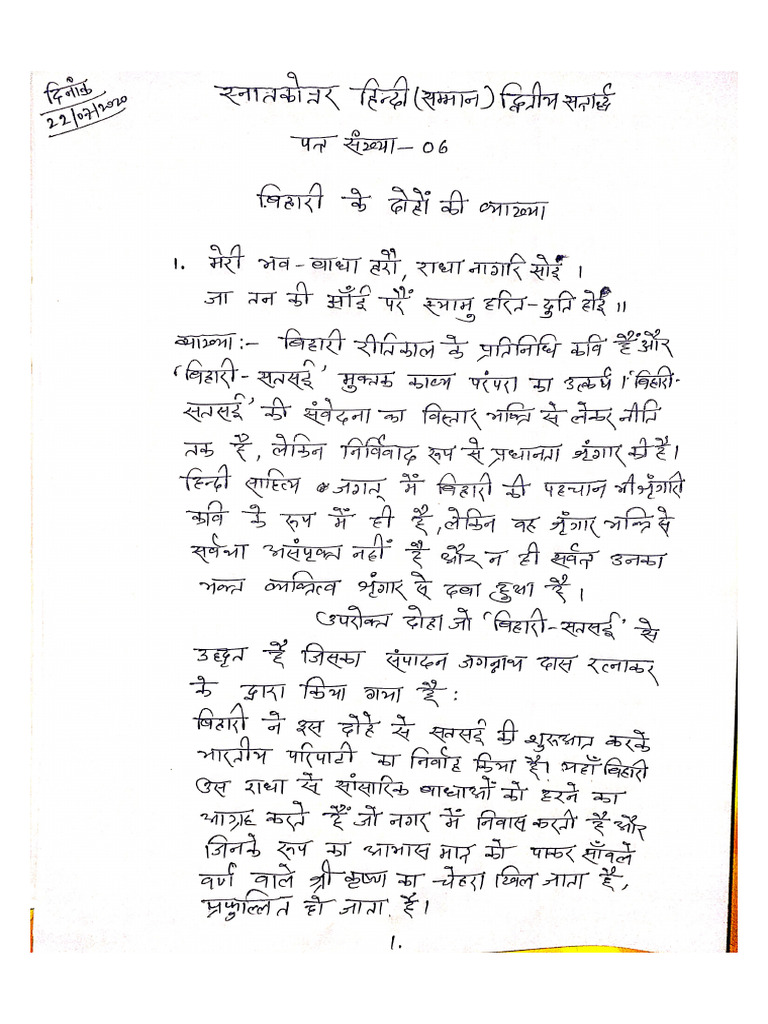 दिनांक
22/07/2020
स्नातकोत्तर हिन्दी (सम्मान) द्वितीय सत्रार्द्ध
पत्र संख्या - 06
बिहारी के दोहों की व्याख्या
1. मेरी भव-बाधा हरौ, राधा नागरि सोई ।
जा तन की झाँई परैं स्यामु हरित-दुति होई ॥
व्याख्या:- बिहारी रीतिकाल के प्रतिनिधि कवि हैं और
'बिहारी-सतसई' मुक्तक काव्य परंपरा का उत्कर्ष । 'बिहारी-
सतसई' की संवेदना का विस्तार भक्ति से लेकर नीति
तक है, लेकिन निर्विवाद रूप से प्रधानता श्रृंगार की है।
हिन्दी साहित्य जगत् में बिहारी की पहचान भी श्रृंगारी
कवि के रूप में ही है, लेकिन वह श्रृंगार भक्ति से
सर्वथा असंपृक्त नहीं है और न ही सर्वत्र उनका
भक्त व्यक्तित्व श्रृंगार से दबा हुआ है ।
उपरोक्त दोहा जो 'बिहारी-सतसई' से
उद्धृत है जिसका संपादन जगन्नाथ दास रत्नाकर
के द्वारा किया गया है :
बिहारी ने इस दोहे से सतसई की शुरूआत करके
भारतीय परिपाटी का निर्वाह किया है। यहाँ बिहारी
उस राधा से सांसारिक बाधाओं को हरने का
आग्रह करते हैं जो नगर में निवास करती है और
जिनके रूप का आभास मात्र को पाकर साँवले
वर्ण वाले श्री कृष्ण का चेहरा खिल जाता है,
प्रफुल्लित हो जाता है ।
1.